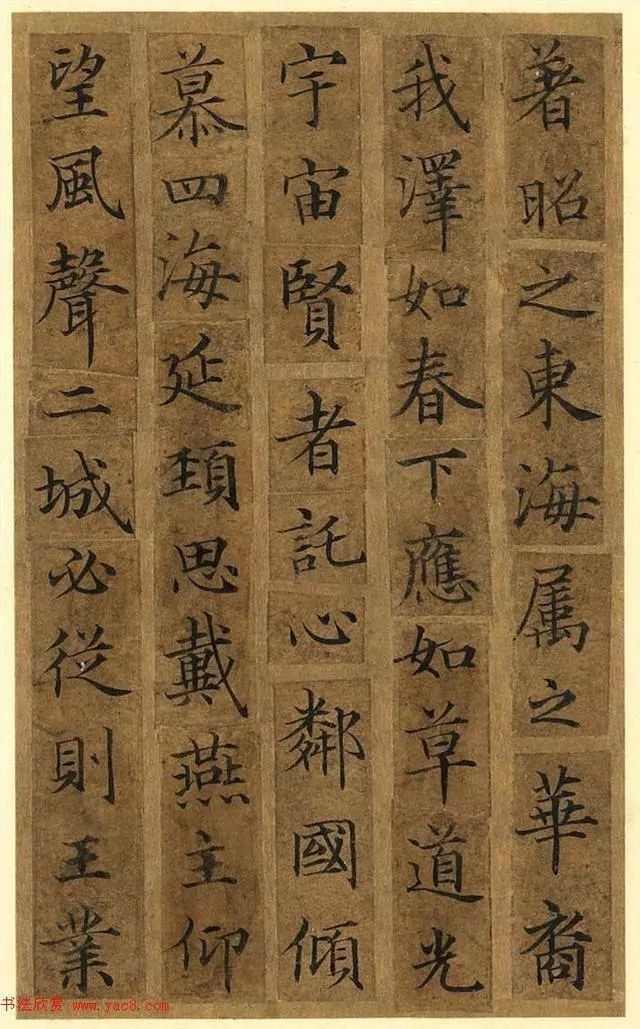 著昭之東海属之華裔
我澤如春下應如草道光
宇宙賢者託心鄰國傾
慕四海延頸思戴燕主仰
望風聲二城必從則王業
书法欣赏 www.yac8.com